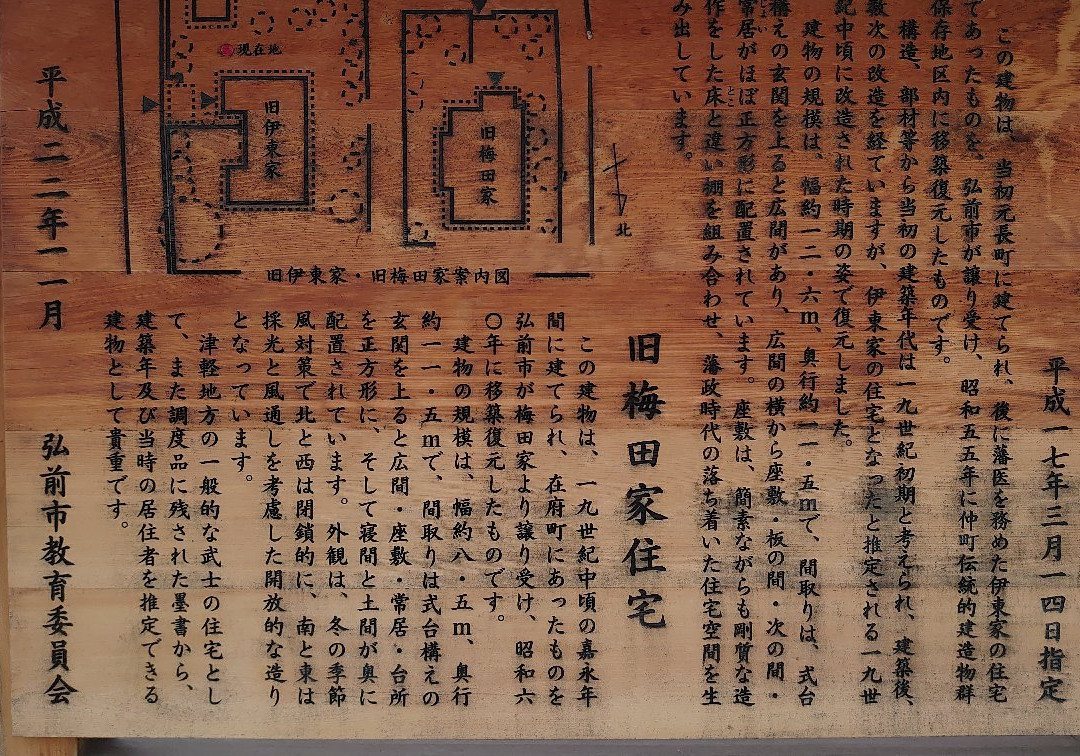 平成一七年三月一四日指定
この建物は、当初元長町に建てられ、後に藩医を務めた伊東家の住宅
であったものを、弘前市が譲り受け、昭和五五年に仲町伝統的建造物群
保存地区内に移築復元したものです。
構造、部材等から当初の建築年代は一九世紀初期と考えられ、建築後、
数次の改造を経ていますが、伊東家の住宅となったと推定される一九世
紀中頃に改造された時期の姿で復元しました。
建物の規模は、幅約一二・六m、奥行約一一・五mで、間取りは、式台
構えの玄関を上ると広間があり、広間の横から座敷・板の間・次の間・
常居がほぼ正方形に配置されています。座敷は、簡素ながらも剛質な造
作をした床と違い棚を組み合わせ、藩政時代の落ち着いた住宅空間を生
み出しています。
旧梅田家住宅
この建物は、一九世紀中頃の嘉永年
間に建てられ、在府町にあったものを
弘前市が梅田家より譲り受け、昭和六
〇年に移築復元したものです。
建物の規模は、幅約八・五m、奥行
約一一・五mで、間取りは式台構えの
玄関を上ると広間・座敷・常居・台所
を正方形に、そして寝間と土間が奥に
配置されています。外観は、冬の季節
風対策で北と西は閉鎖的に、南と東は
採光と風通しを考慮した開放的な造り
となっています。
津軽地方の一般的な武士の住宅とし
て、また調度品に残された墨書から、
建築年及び当時の居住者を推定できる
建物として貴重です。
平成二二年一一月
弘前市教育委員会
現在地
旧伊東家
旧梅田家
北
旧伊東家・旧梅田家案内図